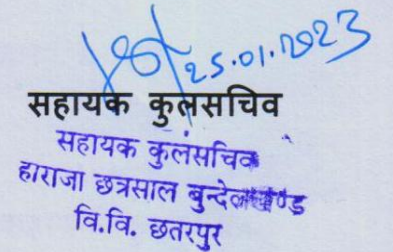 25.01.2023
सहायक कुलसचिव
सहायक कुलसचिव
हाराजा छत्रसाल बुन्देलखण्ड
वि.वि. छतरपुर